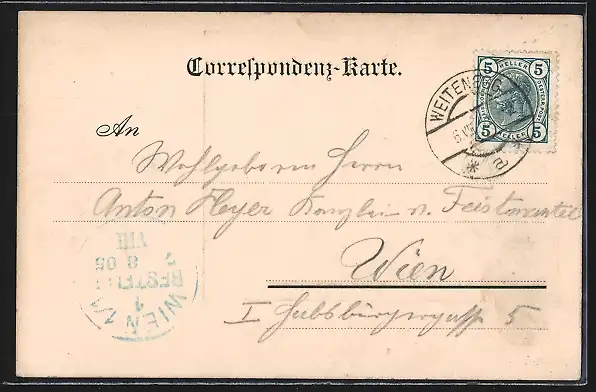 Correspondenz-Karte.
5 HELLER 5
5 HELLER 5
WEITENEGG
a
An
Wohlgeboren Herrn
Anton Heyer Kanzlei v. Feistmantel
Wien
I Habsburgergasse 5
WIEN 1/1
BESTELLT
7 8 05
VIII
1